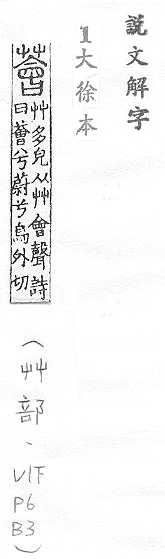 說文解字
1大徐本
薈艸多皃从艸會聲詩
曰薈兮蔚兮烏外切
（艸部、V1F P6 B3）